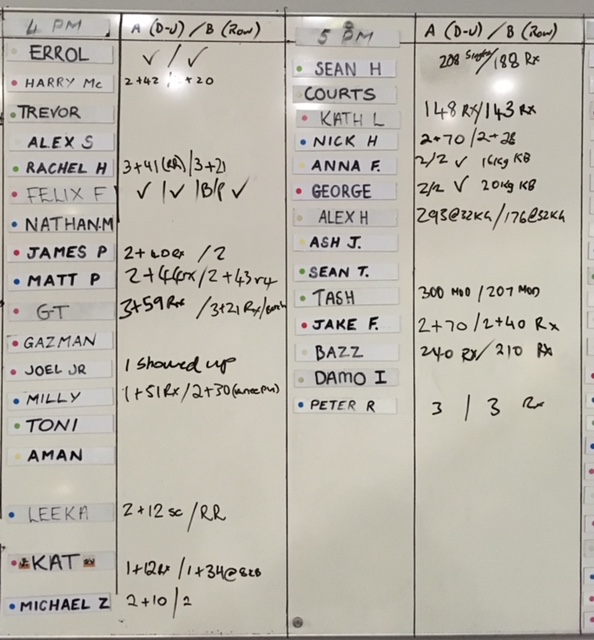 4 PM A (D-U) / B (Row)
ERROL ✓ / ✓
HARRY Mc 2+42 / +20
TREVOR
ALEX S
RACHEL H 3+41 (RR) / 3+21
FELIX F ✓ / ✓ / B/P ✓
NATHAN.M
JAMES P 2+40Rx / 2
MATT P 2+44rx / 2+43rx
GT 3+59Rx / 3+21 Rx/
GAZMAN
JOEL JR I showed up
MILLY 1+51Rx / 2+30
TONI
AMAN
LEEKA 2+12 sc / RR
KAT 1+12Rx / 1+34@
MICHAEL Z 2+10 / 2
5 PM A (D-U) / B (Row)
SEAN H 208 Singles / 188 Rx
COURTS
KATH L 148 RX / 143 RX
NICK H 2+70 / 2+28
ANNA F. 2/2 ✓ 16kg KB
GEORGE 2/2 ✓ 20kg KB
ALEX H 293@32KG / 176@32KG
ASH J.
SEAN T.
TASH 300 MOD / 207 MOD
JAKE F. 2+70 / 2+40 Rx
BAZZ 240 RX / 210 RX
DAMO I
PETER R 3 / 3 Rx